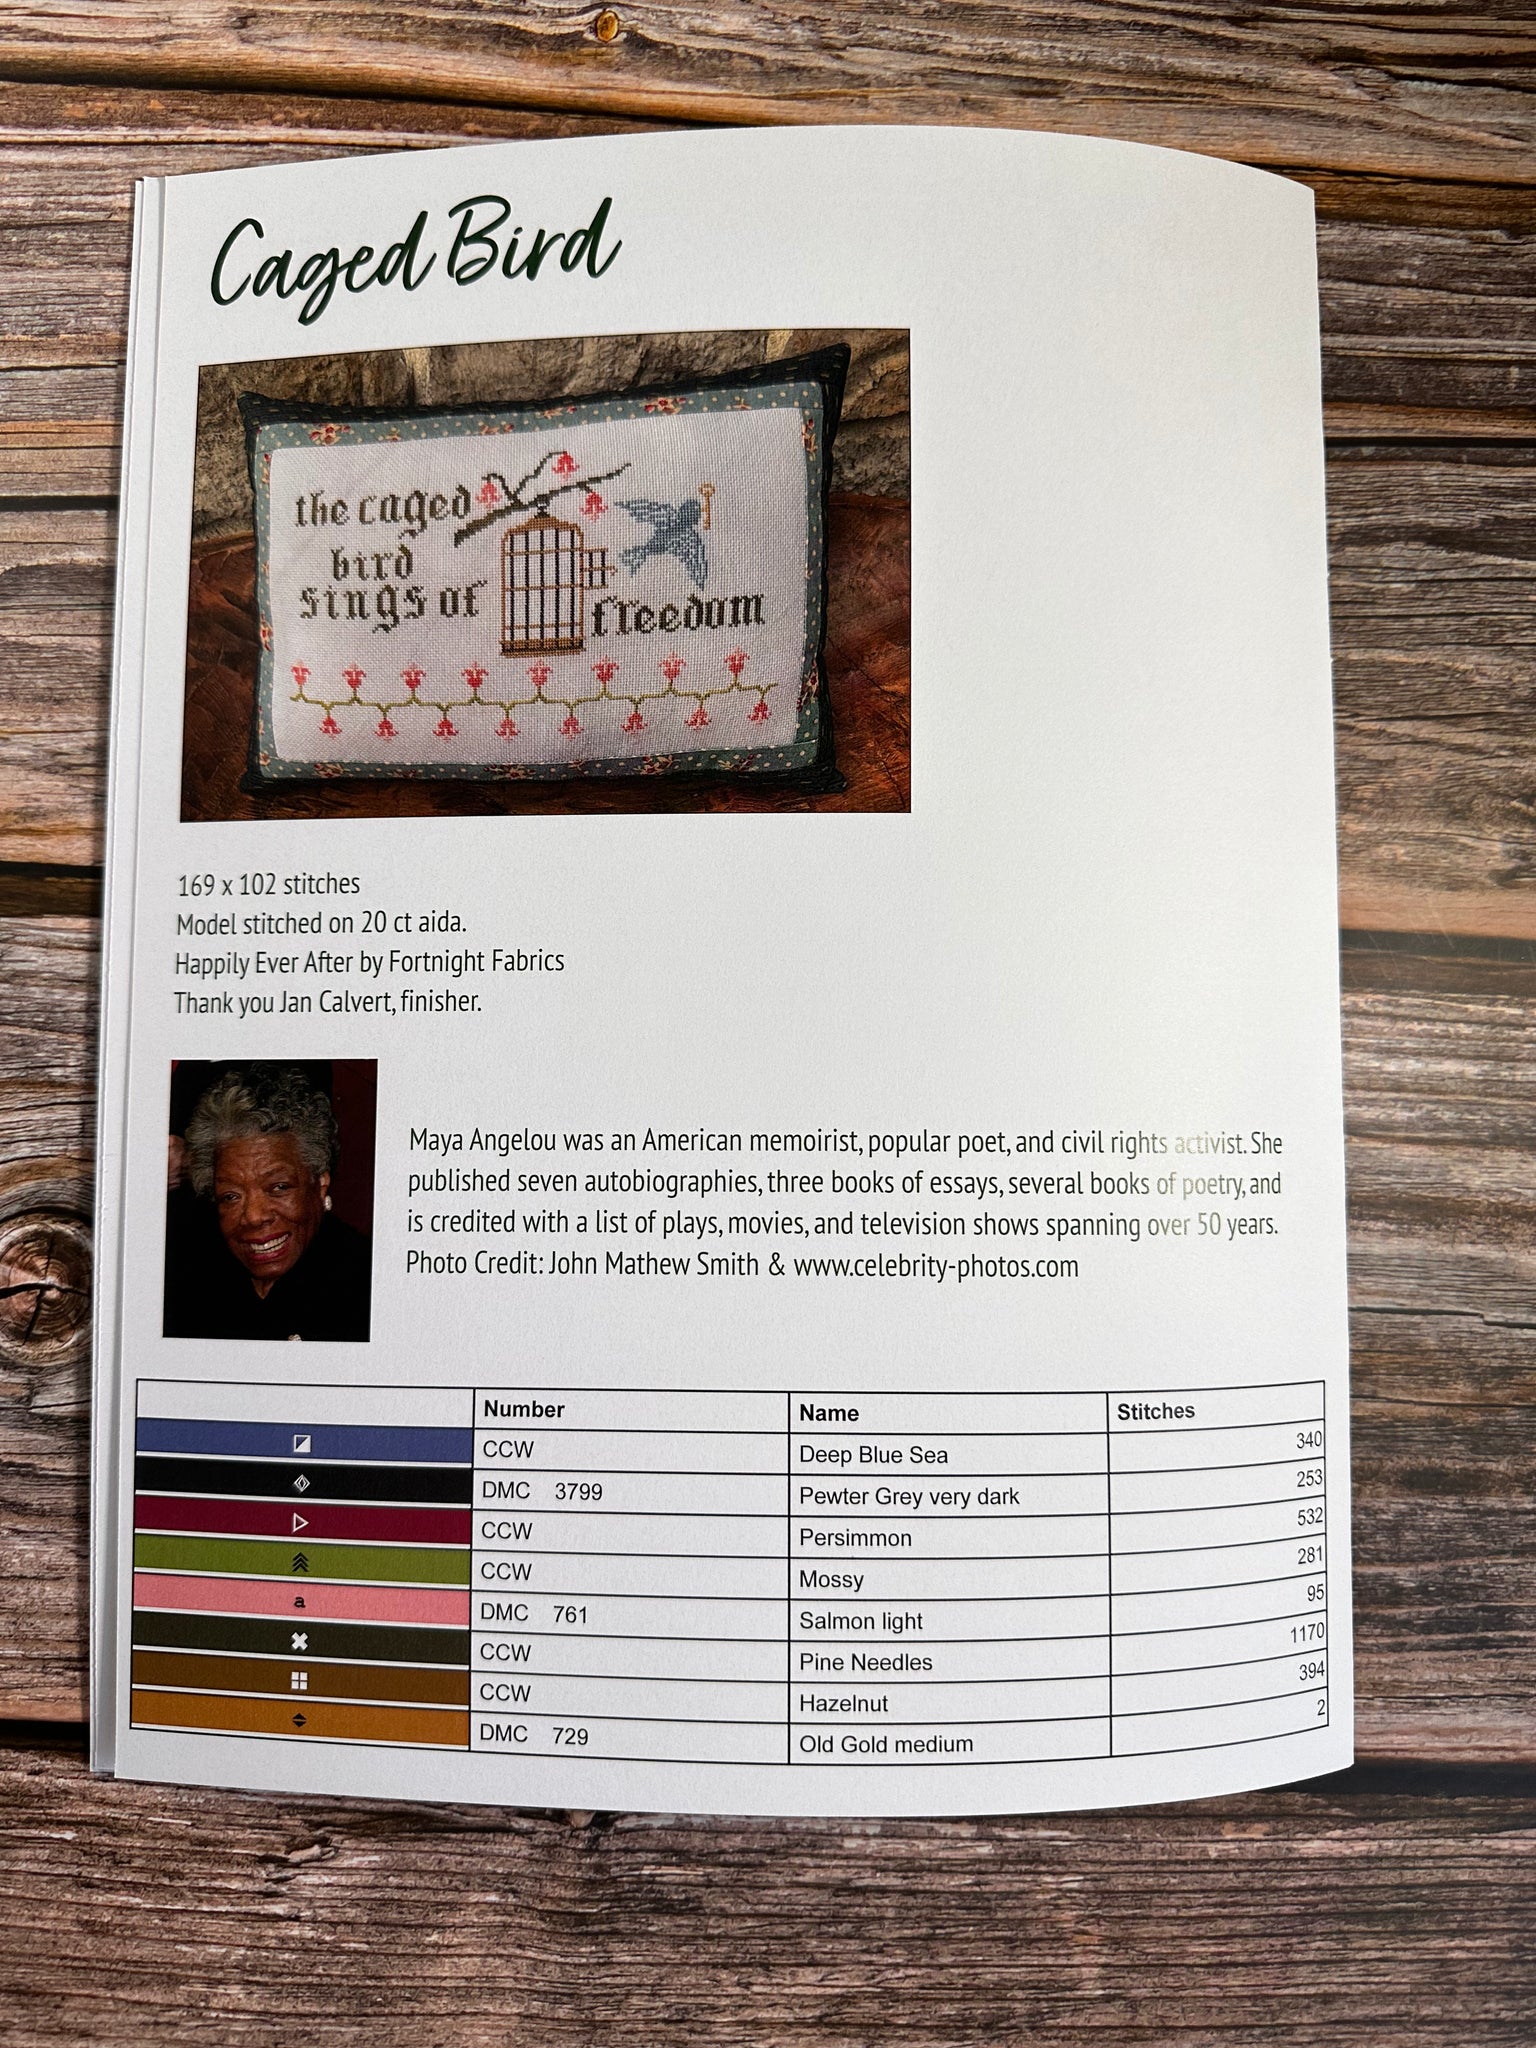 Caged Bird
the caged
bird
sings of
freedom
169 x 102 stitches
Model stitched on 20 ct aida.
Happily Ever After by Fortnight Fabrics
Thank you Jan Calvert, finisher.
Maya Angelou was an American memoirist, popular poet, and civil rights activist. She
published seven autobiographies, three books of essays, several books of poetry, and
is credited with a list of plays, movies, and television shows spanning over 50 years.
Photo Credit: John Mathew Smith & www.celebrity-photos.com
Number Name Stitches
CCW Deep Blue Sea 340
DMC 3799 Pewter Grey very dark 253
CCW Persimmon 532
CCW Mossy 281
a DMC 761 Salmon light 95
CCW Pine Needles 1170
CCW Hazelnut 394
DMC 729 Old Gold medium 2